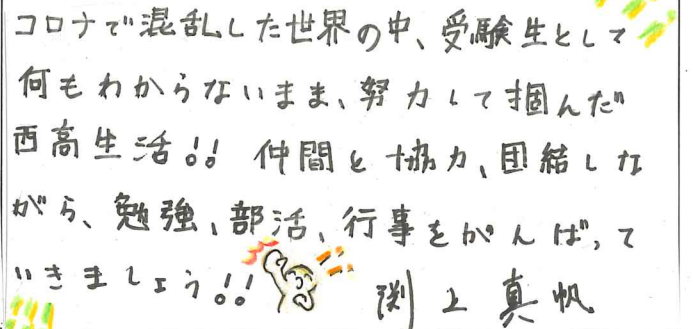 コロナで混乱した世界の中、受験生として
何もわからないまま、努力して掴んだ
西高生活!! 仲間と協力、団結しな
がら、勉強、部活、行事をがんばって
いきましょう!! 渕上真帆